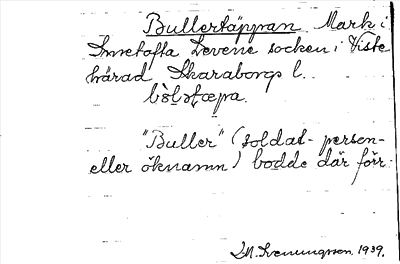 Bullertäppan. Mark i
Innetofta Levene socken i Viste
härad Skaraborgs l.
"Buller" (soldat- person-
eller öknamn) bodde där förr.
M. Svenungsson. 1939.